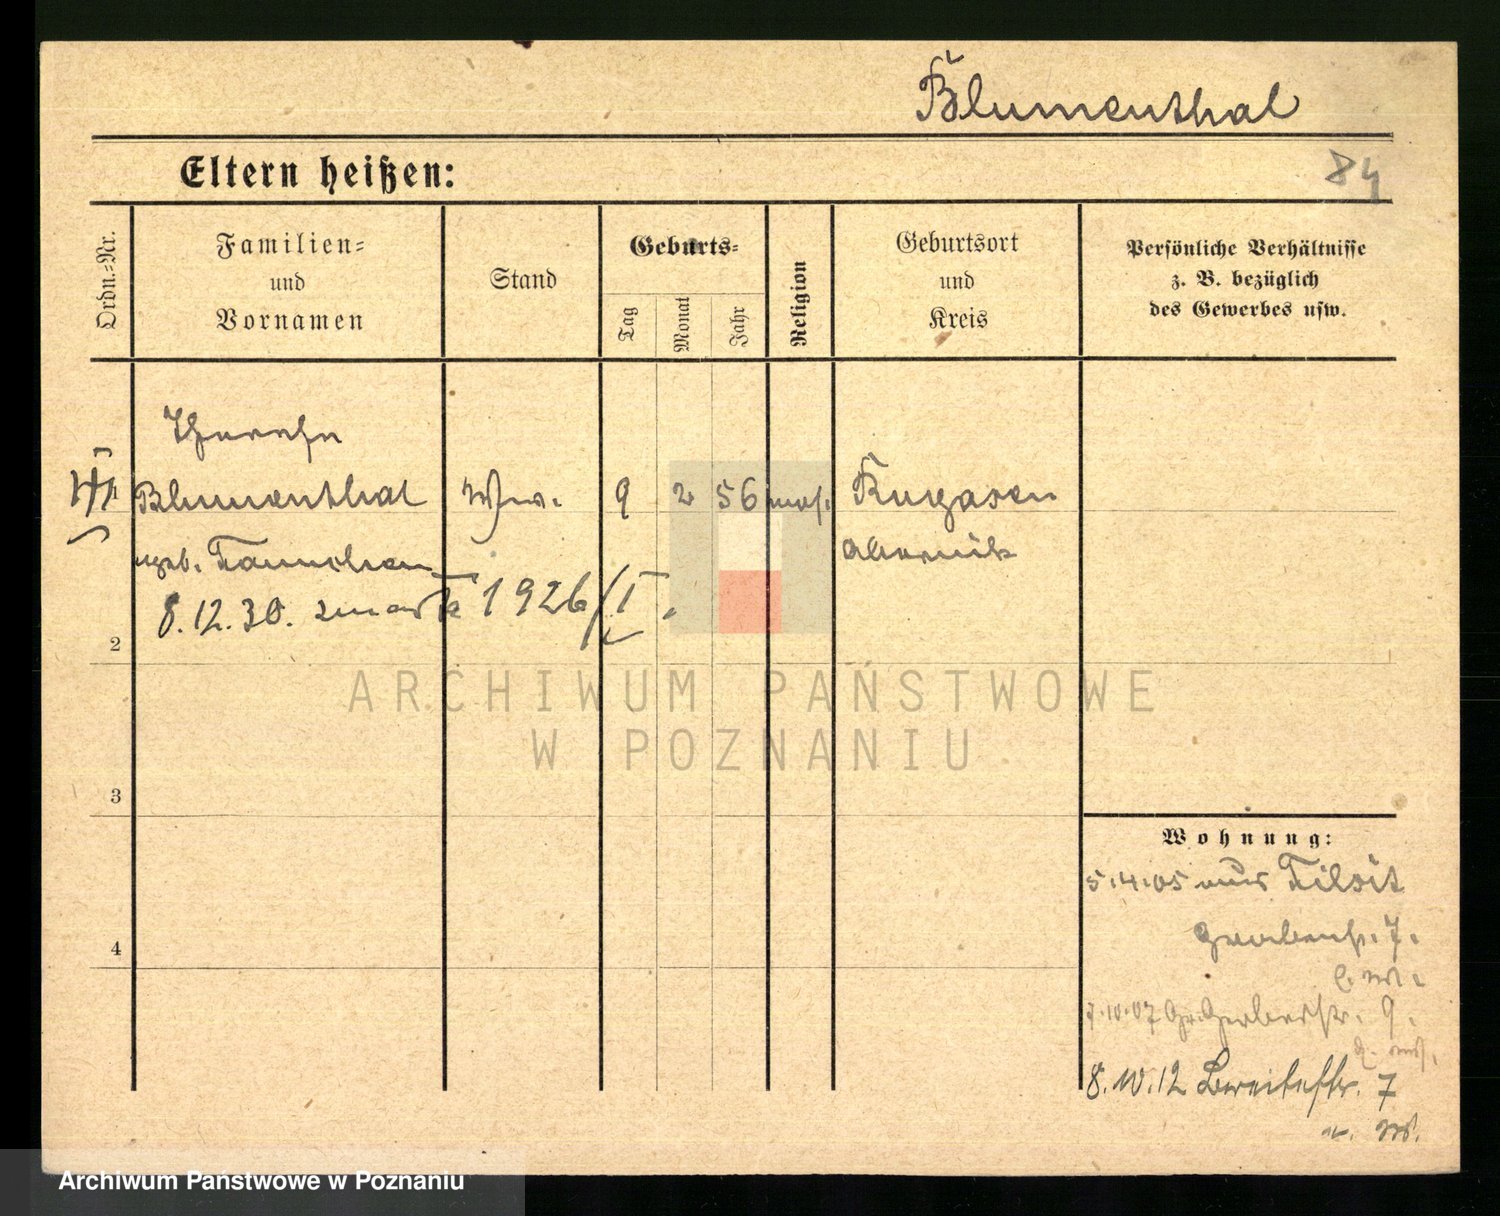 Blumenthal
Eltern heißen:
84
Ordn.-Nr.
Familien-
und
Vornamen
Stand
Geburts-
Tag
Monat
Jahr
Religion
Geburtsort
und
Kreis
Persönliche Verhältnisse
z. B. bezüglich
des Gewerbes usw.
Blumenthal Ww. 9 2 56 mos.
geb.
Obornik
8.12.30. zmarła 1926/I.
2
ARCHIWUM PAŃSTWOWE
W POZNANIU
3
Wohnung:
5.4.05 aus Tilsit
Grabenstr. 7.
4
7.10.07 Gr. Gerberstr. 9.
8.10.12 Breitestr. 7
Archiwum Państwowe w Poznaniu